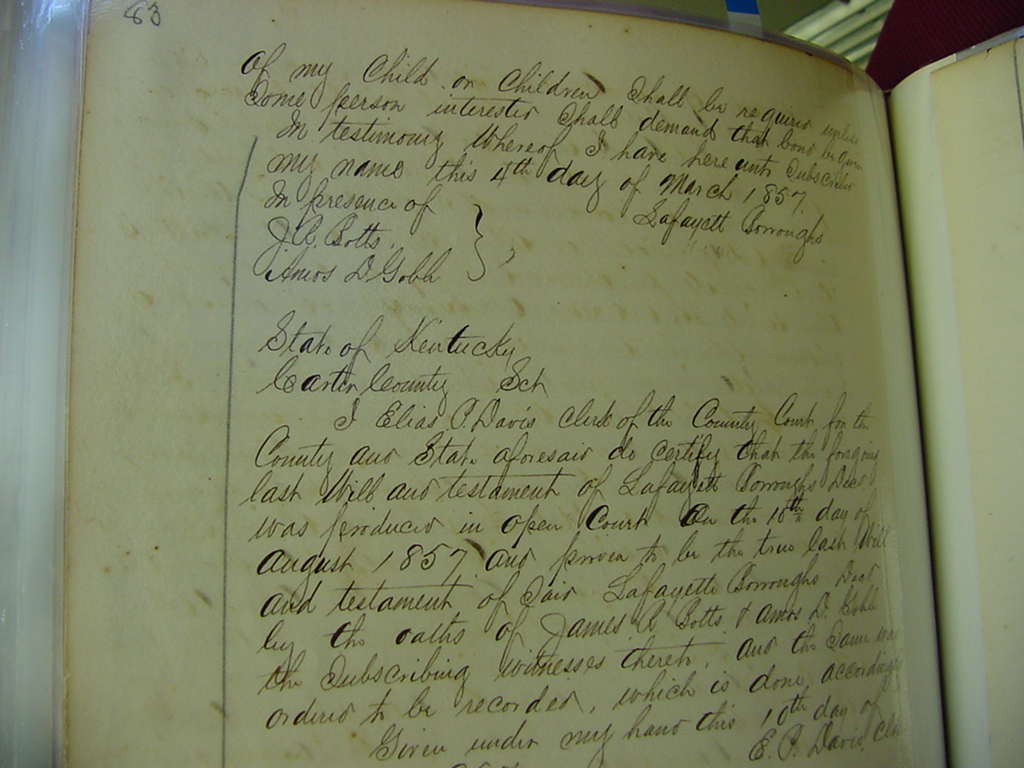 83
of my Child or Children Shall be required unless
Some person interested Shall demand that bond be given
In testimony Whereof I have here unto Subscribed
my name this 4th day of March 1857.
In presence of Lafayett Borroughs
J. R. Botts
Amos D Gobb
State of Kentucky
Carter County Sct
I Elias P. Davis clerk of the County Court for the
County and State aforesaid do certify that the foregoing
last Will and testament of Lafayett Borroughs Decd
was produced in open Court On the 10th day of
August 1857 and proven to be the true last Will
and testament of Said Lafayette Borroughs Decd
by the oaths of James R Botts & Amos D. Gobb
the Subscribing witnesses thereto. and the Same was
ordered to be recorded, which is done accordingly
Given under my hand this 10th day of
E. P. Davis Clk